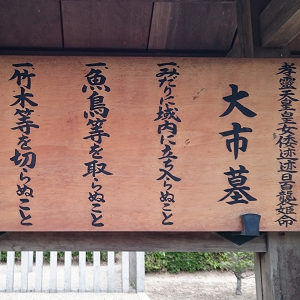 孝霊天皇皇女倭迹迹日百襲姫命
大市墓
一みだりに域内に立ち入らぬこと
一魚鳥等を取らぬこと
一竹木等を切らぬこと